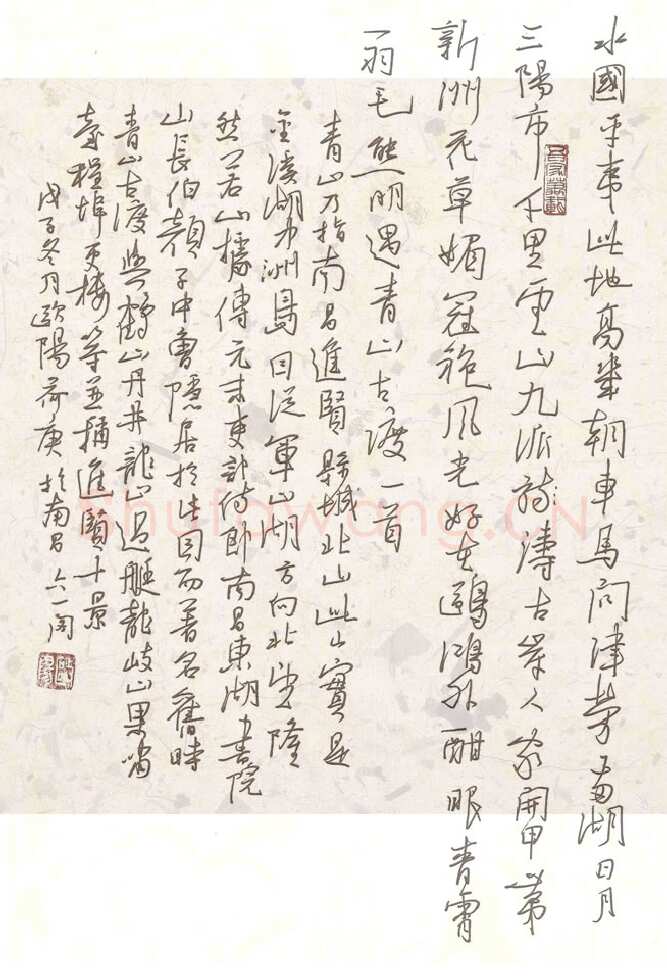 水國平夷此地高幾朝車馬問津勞兩湖日月
三陽市千里雲山九派詩濤古岸人家開甲第
新洲花草媚冠袍風光好在鷗鴻外一酣眼青霄
一羽毛熊明遇青山古渡一首
青山乃指南昌進賢縣城北山此山實是
金溪湖中洲島回從軍山湖方向北望隆
然若山據傳元末吏部侍郎南昌東湖書院
山長伯顏子中曾隱居於此因而著名舊時
青山古渡與鶴山丹井龍山過艇龍岐山果
臺程埠更樓等並稱進賢十景
戊子冬月歐陽荷庚於南昌六一閣
Shufawang.CN